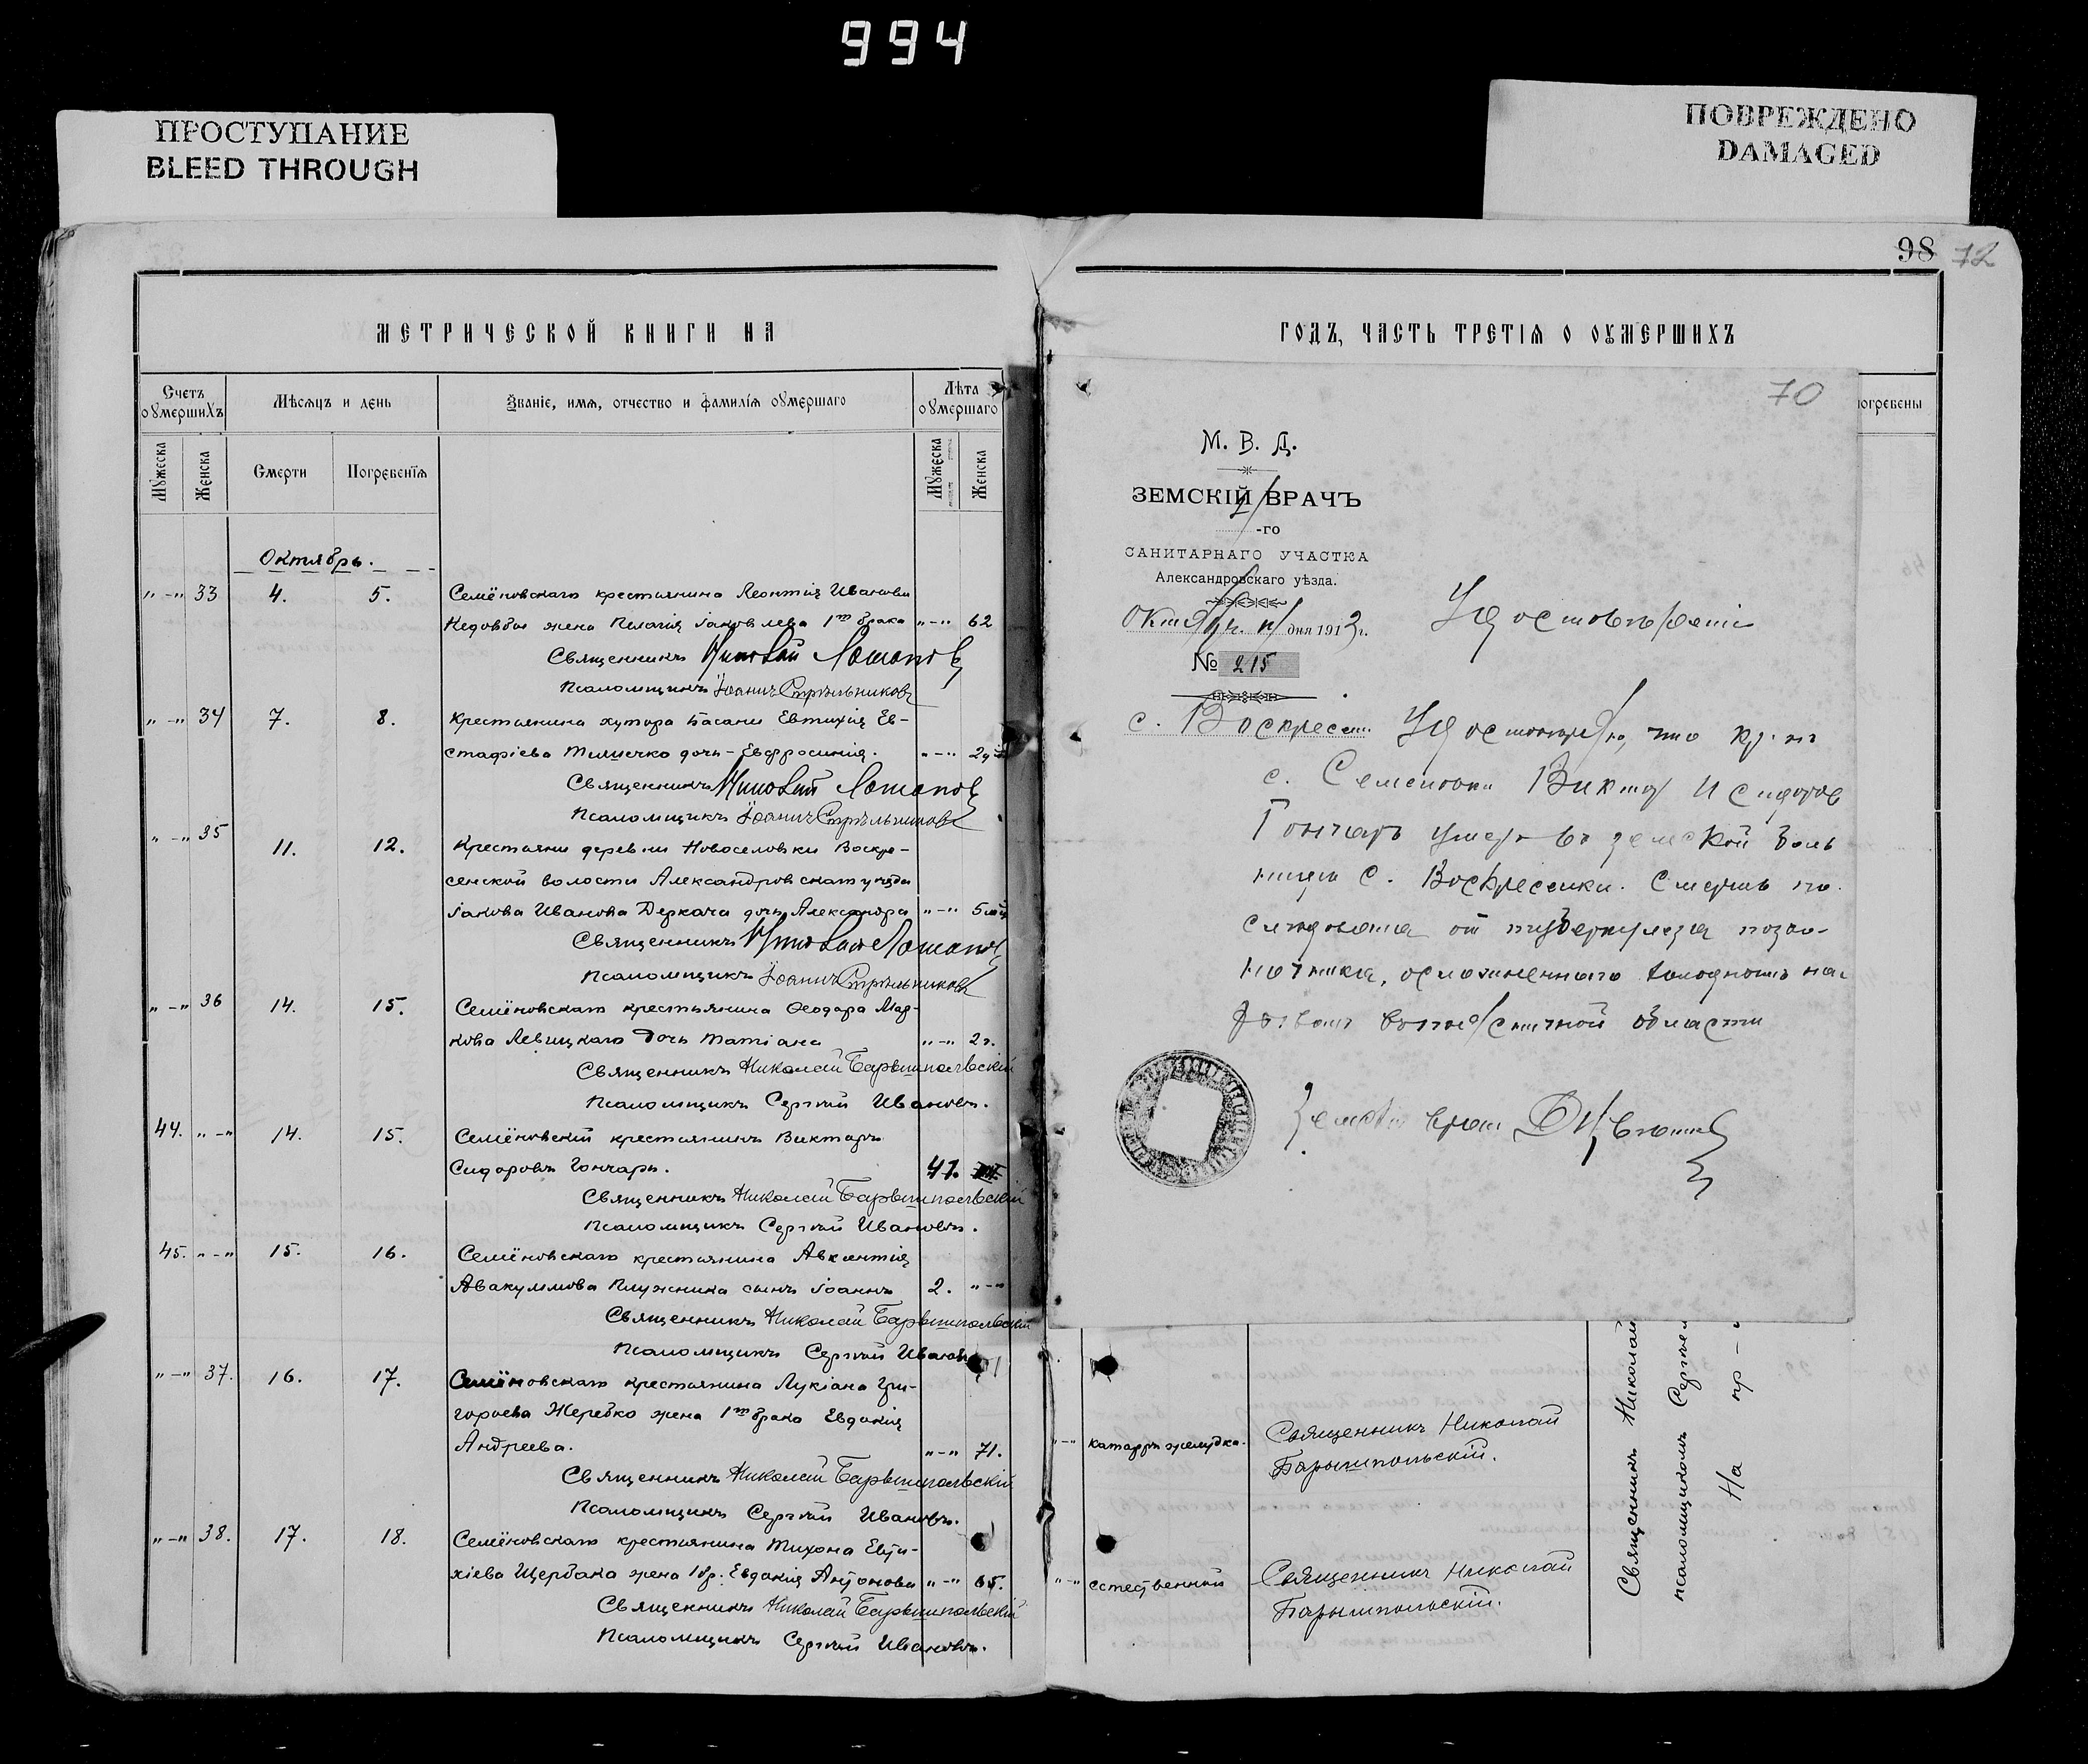 994
ПРОСТУПАНИЕ
BLEED THROUGH
ПОВРЕЖДЕНО
DAMAGED
98 72
МЕТРИЧЕСКОЙ КНИГИ НА
ГОДЪ, ЧАСТЬ ТРЕТІѦ О ОУМЕРШИХЪ
Счетъ оумершихъ
Мѣсяцъ и день
Званіе, имѧ, отчество и фамиліѧ оумершаго
Лѣта оумершаго
погребены
Мужеска
Женска
Смерти
Погребеніѧ
Мужеска
Женска
Октябрь.
" - " 33 4. 5. Семёновскаго крестьянина Леонтія Иванова
жена Пелагія Іаковлева 1го брака " - " 62
Священникъ
Псаломщикъ Іоаннъ Стрѣльниковъ
" - " 34 7. 8. Крестьянина хутора Басани Евтихія Ев-
стафіева дочь - Евфросинія. " - "
Священникъ
Псаломщикъ Іоаннъ Стрѣльниковъ
" - " 35 11. 12. Крестьяни деревни Новоселовки Воскре-
сенской волости Александровскаго уѣзда
Іакова Иванова Деркача дочь Александра " - "
Священникъ
Псаломщикъ Іоаннъ Стрѣльниковъ
" - " 36 14. 15. Семёновскаго крестьянина Ѳеодора Мар-
кова Левицкаго дочь Татіана " - " 2 г.
Священникъ Николай Барышпольскій
Псаломщикъ Сергѣй Ивановъ.
44. " - " 14. 15. Семёновскій крестьянинъ Викторъ
Сидоровъ Гончаръ. 47.
Священникъ Николай Барышпольскій
Псаломщикъ Сергѣй Ивановъ.
45. " - " 15. 16. Семёновскаго крестьянина Авксентія
Авакумова Плужника сынъ Іоаннъ 2. " - "
Священникъ Николай Барышпольскій
Псаломщикъ Сергѣй Ивановъ
" - " 37. 16. 17. Семёновскаго крестьянина Лукіана Гри-
горьева Жеребко жена 1го брака Евдокія
Андреева. " - " 71.
Священникъ Николай Барышпольскій
Псаломщикъ Сергѣй Ивановъ.
" - " 38. 17. 18. Семёновскаго крестьянина Тихона Евти-
хіева Щербака жена 1 бр. Евдокія Антонова " - " 65.
Священникъ Николай Барышпольскій
Псаломщикъ Сергѣй Ивановъ.
70
М. В. Д.
ЗЕМСКІЙ ВРАЧЪ
-го
САНИТАРНАГО УЧАСТКА
Александровскаго уѣзда.
дня 1913 г.
№ 215
Удостовѣреніе
с. Воскресен. Удостовѣряю, что кр-нъ
с. Семеновки Виктор Исидоров
Гончаръ умеръ въ земской боль
ницѣ с. Воскресенки. Смерть по
слѣдовала от туберкулеза позво-
ночника, осложненнаго холоднымъ на-
области
Земскій врач
" - " катарръ желудка.
Священникъ Николай
Барышпольскій.
" - " естественной
Священникъ Николай
Барышпольскій.
Священникъ Николай
псаломщикомъ Сергѣем
На